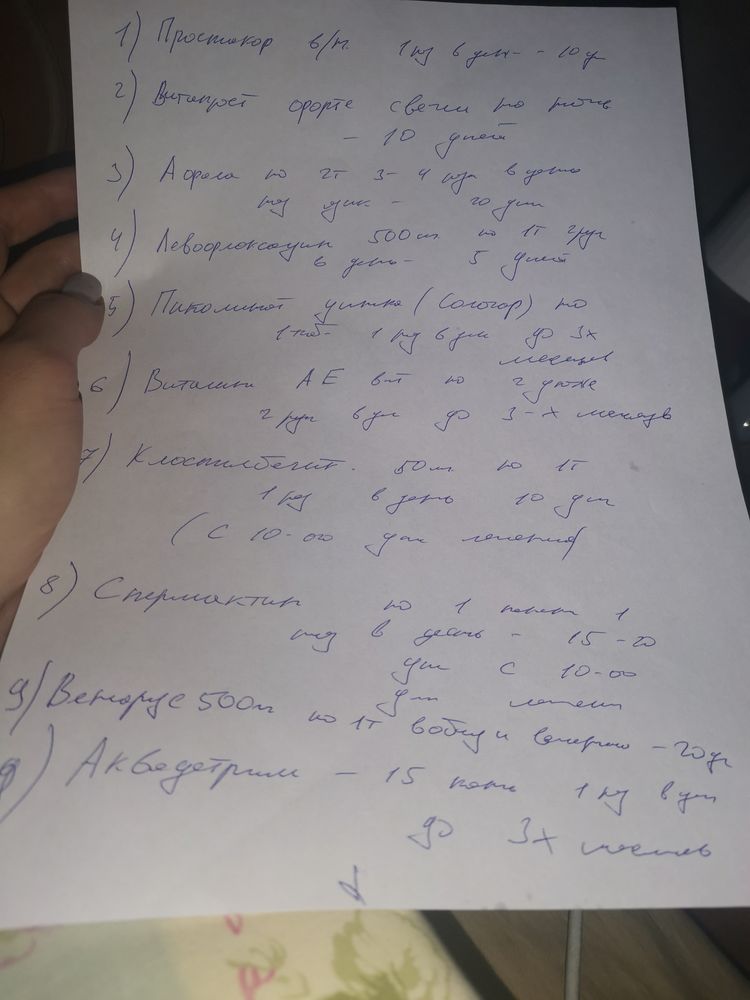 1) Простакор в/м 1 раз в день - 10 д
2) Витапрост форте свечи на ночь
- 10 дней
3) Афала по 2т 3-4 раза в день
- 20 дней
4) Левофлоксацин 500мг по 1т 2 раза
в день - 5 дней
5) Пиколинат цинка (Солгар) по
1 таб. 1 раз в день до 3х
месяцев
6) Витамин АЕ по
2 раза в день до 3-х месяцев
7) Клостилбегит 50мг по 1т
1 раз в день 10 дней
(с 10-ого дня лечения)
8) Спермактин по 1 пакет 1
раз в день - 15-20
дней с 10-ого
дня лечения
9) Венарус 500мг по 1т в обед и вечером - 20 дн
) Аквадетрим - 15 капель 1 раз в день
до 3х месяцев